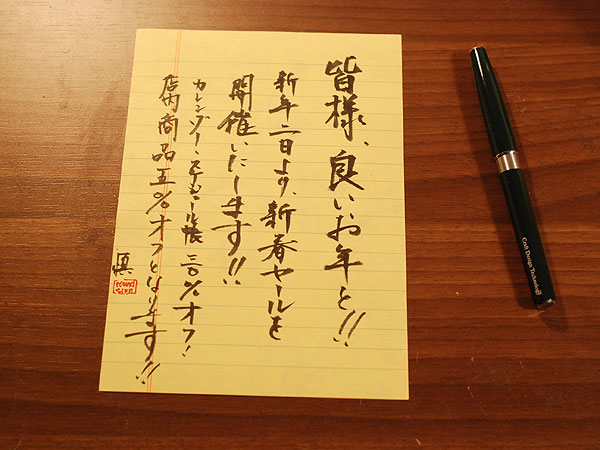 皆様、良いお年を!!
新年二日より、新春セールを
開催いたします!!
カレンダー・スケジュール帳 三〇%オフ!
店内商品五%オフとなります!!
慎
Craft Design Technology